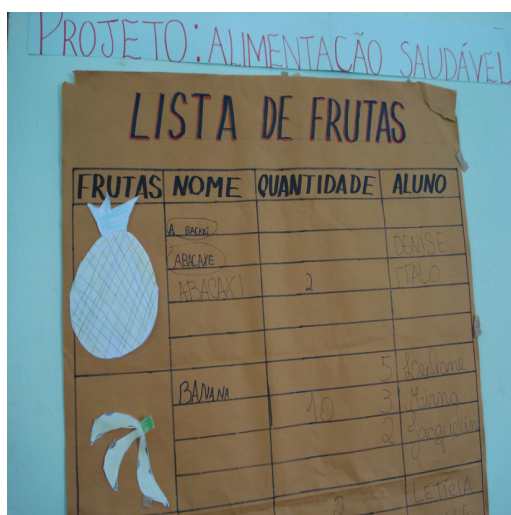 PROJETO: ALIMENTAÇÃO SAUDÁVEL
LISTA DE FRUTAS
FRUTAS NOME QUANTIDADE ALUNO
A BACAXI
ABACAXE DENISE
ABACAXI 2 ITALO
5
BANANA 10 3
2
2 LETÍCIA